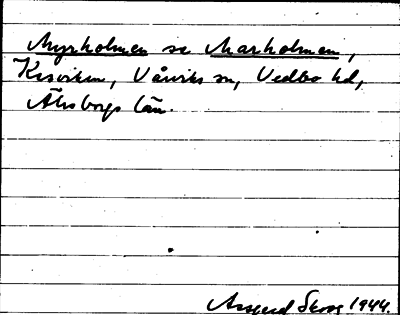 Myrholmen se Marholmen,
Kesviken, Vårviks sn, Vedbo hd,
Älvsborgs län.
Assar Skog 1944.